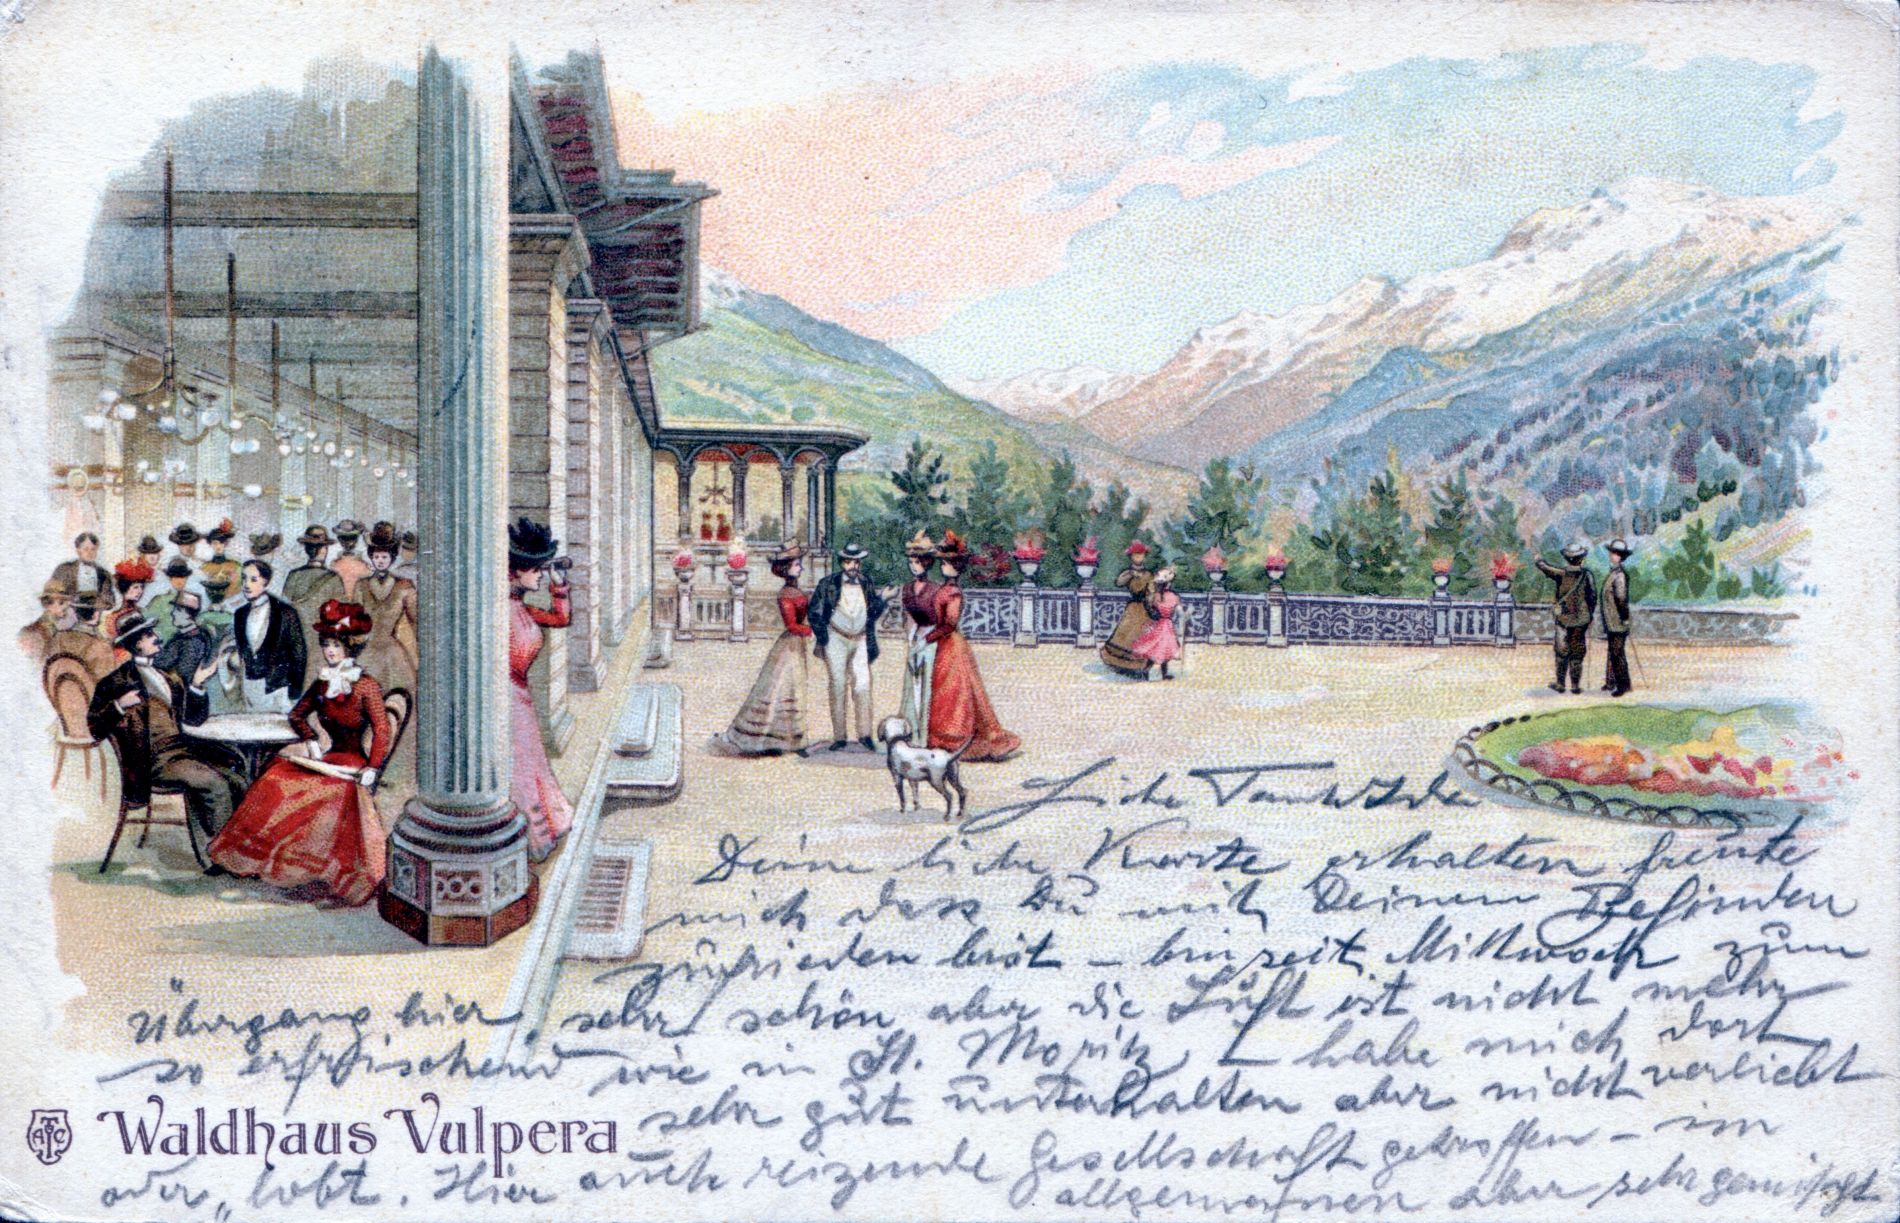 Liebe
Deine liebe Karte erhalten freute
mich dass Du mit Deinem Befinden
zufrieden bist – bin seit Mittwoch zum
Übergang hier sehr schön aber die Luft ist nicht mehr
so erfrischend wie in St. Moritz – habe mich dort
sehr gut unterhalten aber nicht verliebt
ATC Waldhaus Vulpera
oder „lobt. Hier auch reizende Gesellschaft getroffen – im
allgemeinen aber sehr gemischt